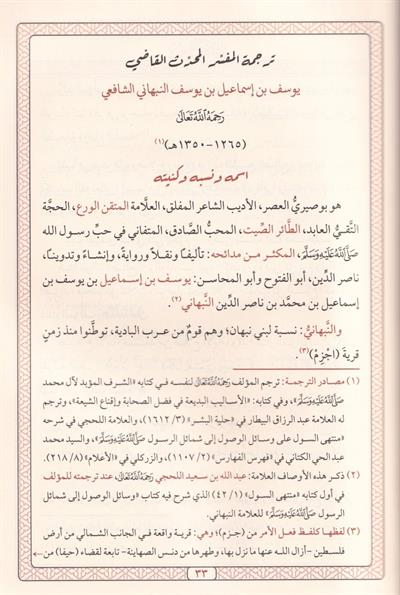 ترجمة المفسّر المحدّث القاضي
يوسف بن إسماعيل بن يوسف النبهاني الشافعي
رَحِمَهُ اللَّهُ تَعَالَى
(١٢٦٥-١٣٥٠هـ)(١)
اسمه ونسبه وكنيته
هو بوصيريُّ العصر، الأديب الشاعر المفلق، العلَّامة المتقن الورع، الحجَّة
التَّقيُّ العابد، الطَّائر الصِّيت، المحبُّ الصَّادق، المتفاني في حبِّ رسول الله
صَلَّى اللَّهُ عَلَيْهِ وَسَلَّمَ، المكثر من مدائحه: تأليفًا ونقلًا وروايةً، وإنشاءً وتدوينًا،
ناصر الدِّين، أبو الفتوح وأبو المحاسن: يوسف بن إسماعيل بن يوسف بن
إسماعيل بن محمَّد بن ناصر الدِّين النَّبهاني(٢).
والنَّبهانيُّ: نسبة لبني نبهان؛ وهم قومٌ من عرب البادية، توطَّنوا منذ زمنٍ
قرية (اجْزِم)(٣).
(١) مصادر الترجمة: ترجم المؤلف رَحِمَهُ اللَّهُ تَعَالَى لنفسه في كتابه «الشرف المؤبد لآل محمد
صَلَّى اللَّهُ عَلَيْهِ وَسَلَّمَ»، وفي كتابه: «الأساليب البديعة في فضل الصحابة وإقناع الشيعة»، وترجم
له العلامة عبد الرزاق البيطار في «حلية البشر» (٣/ ١٦١٢)، والعلامة اللحجي في شرحه
«منتهى السول على وسائل الوصول إلى شمائل الرسول صَلَّى اللَّهُ عَلَيْهِ وَسَلَّمَ»، والسيد محمد
عبد الحي الكتاني في «فهرس الفهارس» (٢/ ١١٠٧)، والزركلي في «الأعلام» (٨/ ٢١٨).
(٢) ذكر هذه الأوصاف العلامة: عبد الله بن سعيد اللحجي رَحِمَهُ اللَّهُ تَعَالَى، عند ترجمته للمؤلف
في أول كتابه «منتهى السول» (١/ ٤٢) الذي شرح فيه كتاب «وسائل الوصول إلى شمائل
الرسول صَلَّى اللَّهُ عَلَيْهِ وَسَلَّمَ» للعلامة النبهاني.
(٣) لفظها كلفظ فعل الأمر من (جزم)؛ وهي: قرية واقعة في الجانب الشمالي من أرض
فلسطين -أزال الله عنها ما نزل بها، وطهرها من دنس الصهاينة- تابعة لقضاء (حيفا) من ←
٣٣